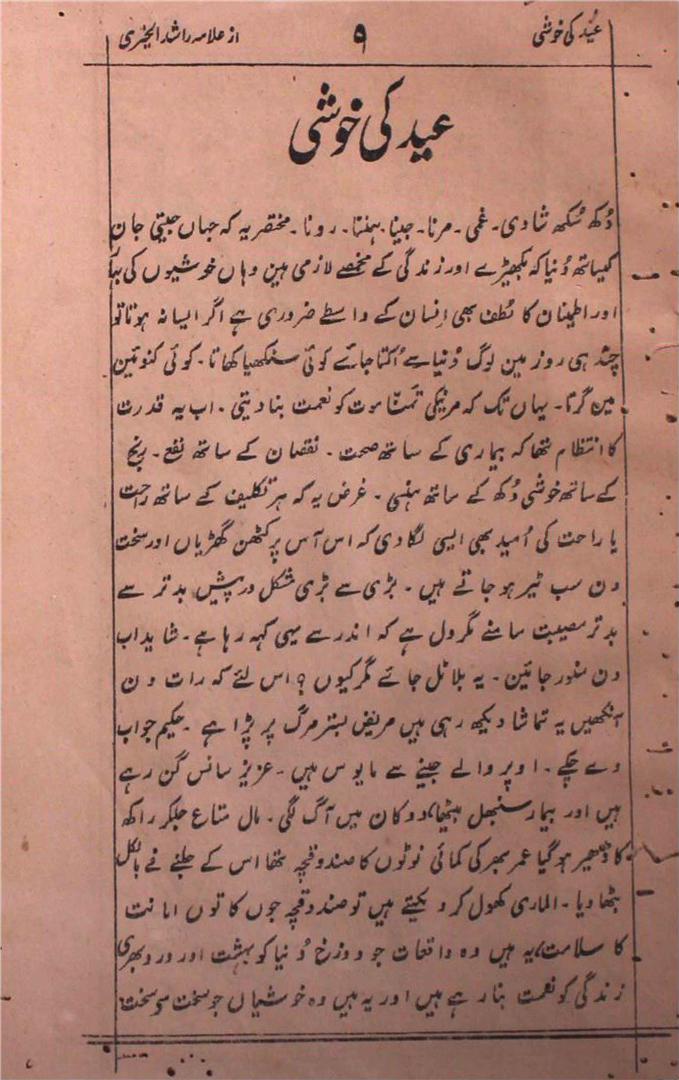 عید کی خوشی ۹ از علامہ راشد الخیری
عید کی خوشی
دُکھ سُکھ شادی۔ غمی۔ مرنا۔ جینا۔ ہنسنا۔ رونا۔ مختصر یہ کہ جہاں جیتی جان
کیساتھ دُنیا کہ بکھیڑے اور زندگی کے مخمصے لازمی ہین وہاں خوشیوں کی
اور اطمینان کا لُطف بھی اِنسان کے واسطے ضروری ہے اگر ایسا نہ ہوتا تو
چند ہی روز مین لوگ دُنیا سے اُکتا جائے کوئی سنکھیا کھاتا۔ کوئی کنوئین
مین گرتا۔ یہاں تک کہ مرنیکی تمنّا موت کو نعمت بنا دیتی۔ اب یہ قدرت
کا انتظام تھا کہ بیماری کے ساتھ صحت۔ نقصان کے ساتھ نفع۔ رنج
کے ساتھ خوشی دُکھ کے ساتھ ہنسی۔ غرض یہ کہ ہر تکلیف کے ساتھ راحت
یا راحت کی اُمید بھی ایسی لگا دی کہ اس آس پر کٹھن گھڑیاں اور سخت
دن سب تیر ہو جاتے ہیں۔ بڑی سے بڑی مشکل درپیش بدتر سے
بدتر مصیبت سامنے مگر دل ہے کہ اندر سے یہی کہہ رہا ہے۔ شاید اب
دن سنور جائین۔ یہ بلا ٹل جائے مگر کیوں؟ اس لئے کہ رات دن
آنکھیں یہ تماشا دیکھ رہی ہیں مریض بستر مرگ پر پڑا ہے۔ حکیم جواب
دے چکے۔ اوپر والے جینے سے مایوس ہیں۔ عزیز سانس گن رہے
ہیں اور بیمار سنبھل بیٹھا، دوکان میں آگ لگی۔ مال متاع جلکر راکھ
کا ڈھیر ہو گیا عمر بھر کی کمائی نوٹوں کا صندوقچہ تھا اس کے جلنے نے بالکل
بٹھا دیا۔ الماری کھول کر دیکھتے ہیں تو صندوقچہ جوں کا توں امانت
کا سلامت، یہ ہیں وہ واقعات جو دوزخ دُنیا کو بہشت اور درد بھری
زندگی کو نعمت بنا رہے ہیں اور یہ ہیں وہ خوشیاں جو سخت سے سخت